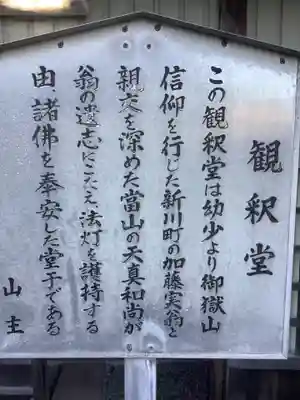 観釈堂
この観釈堂は幼少より御嶽山
信仰を行じた新川町の加藤実翁と
親交を深めた當山の天真和尚が
翁の遺志にこたえ法灯を護持する
由、諸佛を奉安した堂子である
山主